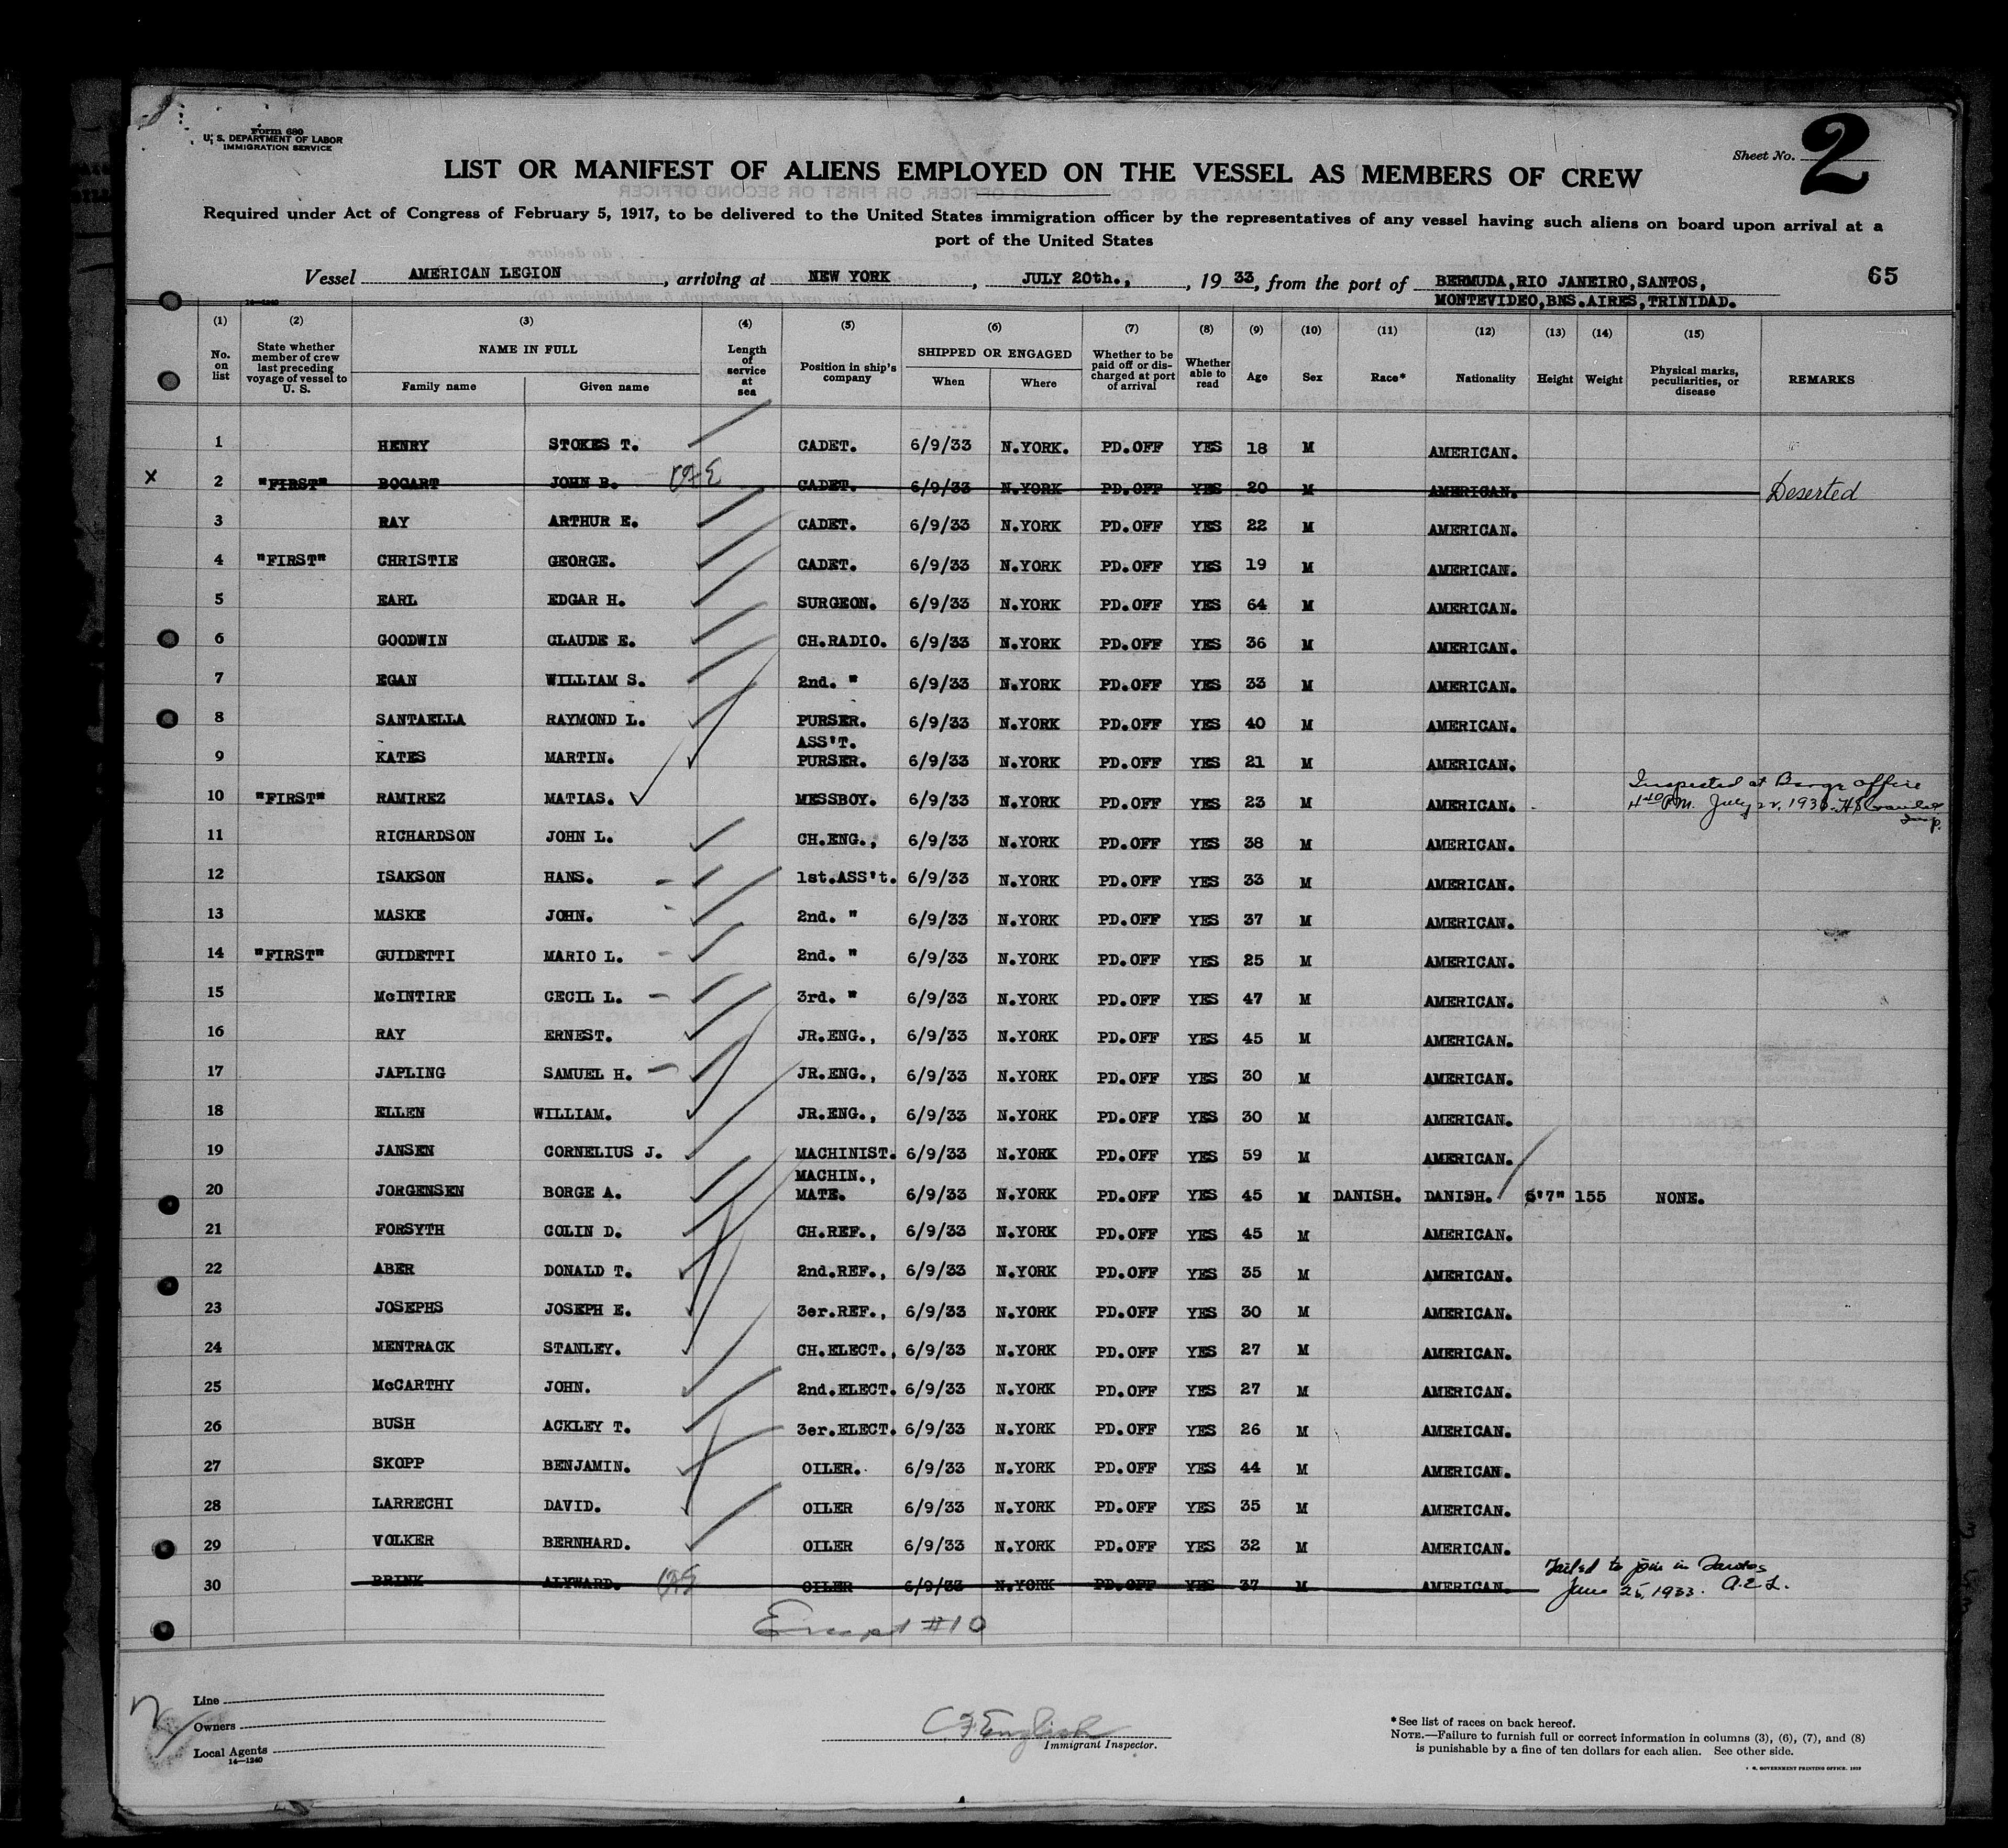 Form 680
U. S. DEPARTMENT OF LABOR
IMMIGRATION SERVICE
Sheet No. 2
LIST OR MANIFEST OF ALIENS EMPLOYED ON THE VESSEL AS MEMBERS OF CREW
Required under Act of Congress of February 5, 1917, to be delivered to the United States immigration officer by the representatives of any vessel having such aliens on board upon arrival at a
port of the United States
Vessel AMERICAN LEGION, arriving at NEW YORK, JULY 20th., , 1933, from the port of BERMUDA,RIO JANEIRO,SANTOS,
MONTEVIDEO,BNS.AIRES,TRINIDAD.
65
14-1240
(1) (2) (3) (4) (5) (6) (7) (8) (9) (10) (11) (12) (13) (14) (15)
No. on list State whether member of crew last preceding voyage of vessel to U. S. NAME IN FULL Family name Given name Length of service at sea Position in ship's company SHIPPED OR ENGAGED When Where Whether to be paid off or discharged at port of arrival Whether able to read Age Sex Race* Nationality Height Weight Physical marks, peculiarities, or disease REMARKS
1 HENRY STOKES T. CADET. 6/9/33 N.YORK. PD.OFF YES 18 M AMERICAN.
x 2 "FIRST" BOGART JOHN B. CADET. 6/9/33 N.YORK PD.OFF YES 20 M AMERICAN. Deserted
3 RAY ARTHUR E. CADET. 6/9/33 N.YORK PD.OFF YES 22 M AMERICAN.
4 "FIRST" CHRISTIE GEORGE. CADET. 6/9/33 N.YORK PD.OFF YES 19 M AMERICAN.
5 EARL EDGAR H. SURGEON. 6/9/33 N.YORK PD.OFF YES 64 M AMERICAN.
6 GOODWIN CLAUDE E. CH.RADIO. 6/9/33 N.YORK PD.OFF YES 36 M AMERICAN.
7 EGAN WILLIAM S. 2nd. " 6/9/33 N.YORK PD.OFF YES 33 M AMERICAN.
8 SANTAELLA RAYMOND L. PURSER. 6/9/33 N.YORK PD.OFF YES 40 M AMERICAN.
9 KATES MARTIN. ASS'T. PURSER. 6/9/33 N.YORK PD.OFF YES 21 M AMERICAN.
10 "FIRST" RAMIREZ MATIAS. MESSBOY. 6/9/33 N.YORK PD.OFF YES 23 M AMERICAN. Inspected at Barge Office
4 40 P.M. July 22, 1933. Insp.
11 RICHARDSON JOHN L. CH.ENG., 6/9/33 N.YORK PD.OFF YES 38 M AMERICAN.
12 ISAKSON HANS. 1st.ASS't. 6/9/33 N.YORK PD.OFF YES 33 M AMERICAN.
13 MASKE JOHN. 2nd. " 6/9/33 N.YORK PD.OFF YES 37 M AMERICAN.
14 "FIRST" GUIDETTI MARIO L. 2nd. " 6/9/33 N.YORK PD.OFF YES 25 M AMERICAN.
15 McINTIRE CECIL L. 3rd. " 6/9/33 N.YORK PD.OFF YES 47 M AMERICAN.
16 RAY ERNEST. JR.ENG., 6/9/33 N.YORK PD.OFF YES 45 M AMERICAN.
17 JAPLING SAMUEL H. JR.ENG., 6/9/33 N.YORK PD.OFF YES 30 M AMERICAN.
18 ELLEN WILLIAM. JR.ENG., 6/9/33 N.YORK PD.OFF YES 30 M AMERICAN.
19 JANSEN CORNELIUS J. MACHINIST. 6/9/33 N.YORK PD.OFF YES 59 M AMERICAN.
20 JORGENSEN BORGE A. MACHIN., MATE. 6/9/33 N.YORK PD.OFF YES 45 M DANISH. DANISH. 5'7" 155 NONE.
21 FORSYTH COLIN D. CH.REF., 6/9/33 N.YORK PD.OFF YES 45 M AMERICAN.
22 ABER DONALD T. 2nd.REF., 6/9/33 N.YORK PD.OFF YES 35 M AMERICAN.
23 JOSEPHS JOSEPH E. 3er.REF., 6/9/33 N.YORK PD.OFF YES 30 M AMERICAN.
24 MENTRACK STANLEY. CH.ELECT., 6/9/33 N.YORK PD.OFF YES 27 M AMERICAN.
25 McCARTHY JOHN. 2nd.ELECT. 6/9/33 N.YORK PD.OFF YES 27 M AMERICAN.
26 BUSH ACKLEY T. 3er.ELECT. 6/9/33 N.YORK PD.OFF YES 26 M AMERICAN.
27 SKOPP BENJAMIN. OILER. 6/9/33 N.YORK PD.OFF YES 44 M AMERICAN.
28 LARRECHI DAVID. OILER 6/9/33 N.YORK PD.OFF YES 35 M AMERICAN.
29 VOLKER BERNHARD. OILER 6/9/33 N.YORK PD.OFF YES 32 M AMERICAN.
30 BRINK ALYWARD. OILER 6/9/33 N.YORK PD.OFF YES 37 M AMERICAN. Failed to join in Santos
June 25, 1933.
Except #10
Line
Owners
Local Agents
14-1240
C F English
Immigrant Inspector.
*See list of races on back hereof.
NOTE.—Failure to furnish full or correct information in columns (3), (6), (7), and (8)
is punishable by a fine of ten dollars for each alien. See other side.
GOVERNMENT PRINTING OFFICE.